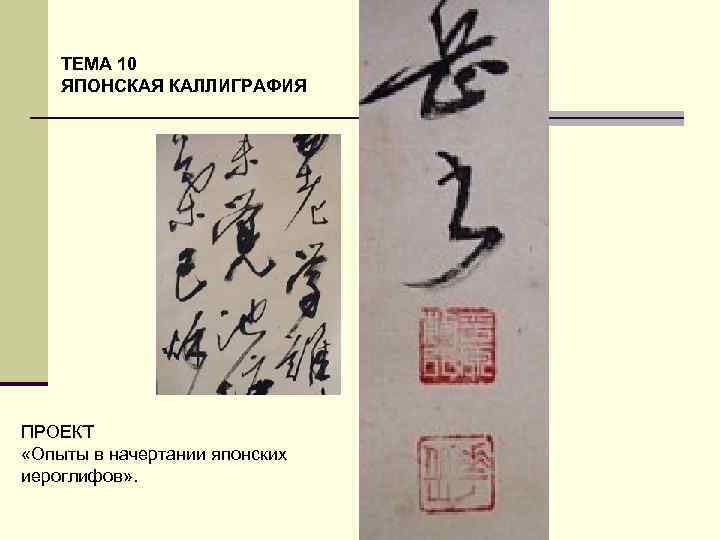 ТЕМА 10
ЯПОНСКАЯ КАЛЛИГРАФИЯ
老學難
未覺池
已秋
ПРОЕКТ
«Опыты в начертании японских
иероглифов» .